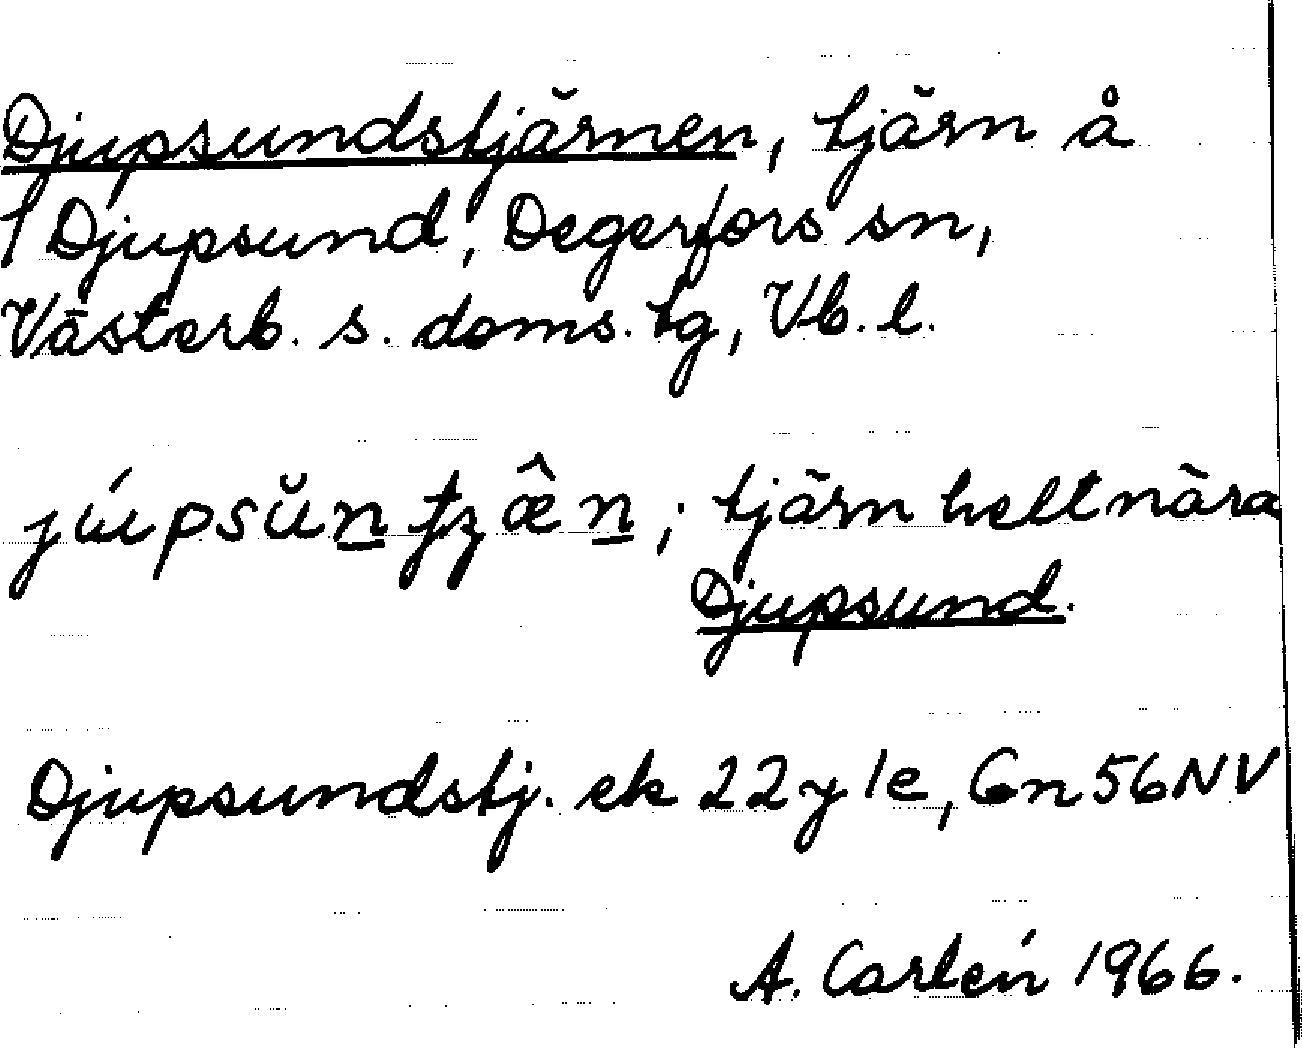 Djupsundstjärnen, tjärn å
f Djupsund, Degerfors sn,
Västerb. s. doms. tg, Vb. l.
júpsŭn tʒæ̂n; tjärn helt nära
Djupsund.
Djupsundstj. ek 22y1e, Gn 56 NV
A. Carlén 1966.